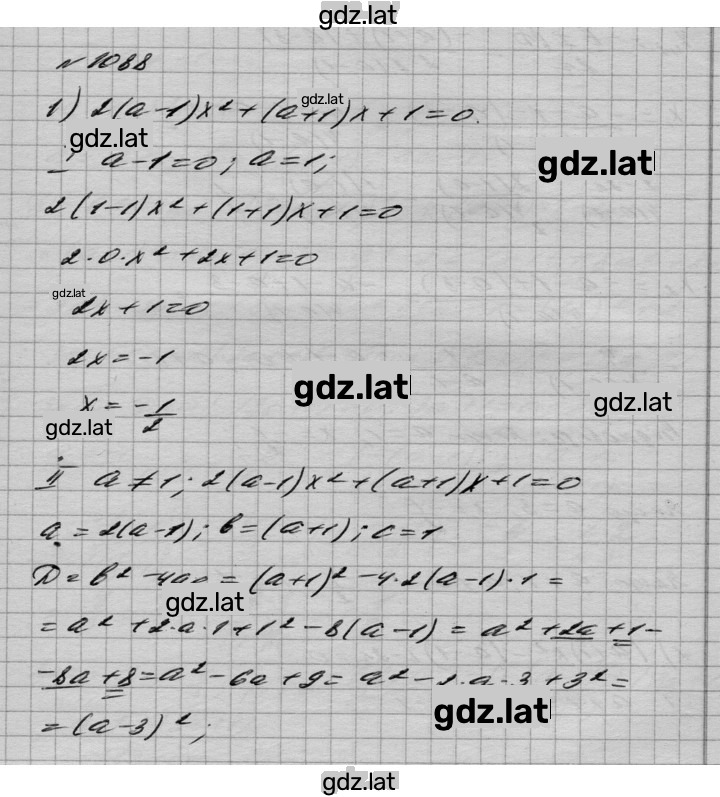 gdz.lat
№1088
1) 2(a-1)x²+(a+1)x+1=0.
gdz.lat
gdz.lat
I a-1=0; a=1;
gdz.lat
2(1-1)x²+(1+1)x+1=0
2·0·x²+2x+1=0
gdz.lat
2x+1=0
2x=-1
gdz.lat
gdz.lat
x=-1/2
gdz.lat
II a≠1; 2(a-1)x²+(a+1)x+1=0
a=2(a-1); b=(a+1); c=1
D=b²-4ac=(a+1)²-4·2(a-1)·1=
gdz.lat
=a²+2·a·1+1²-8(a-1)=a²+2a+1-
-8a+8=a²-6a+9=a²-2·a·3+3²=
gdz.lat
=(a-3)²;
gdz.lat